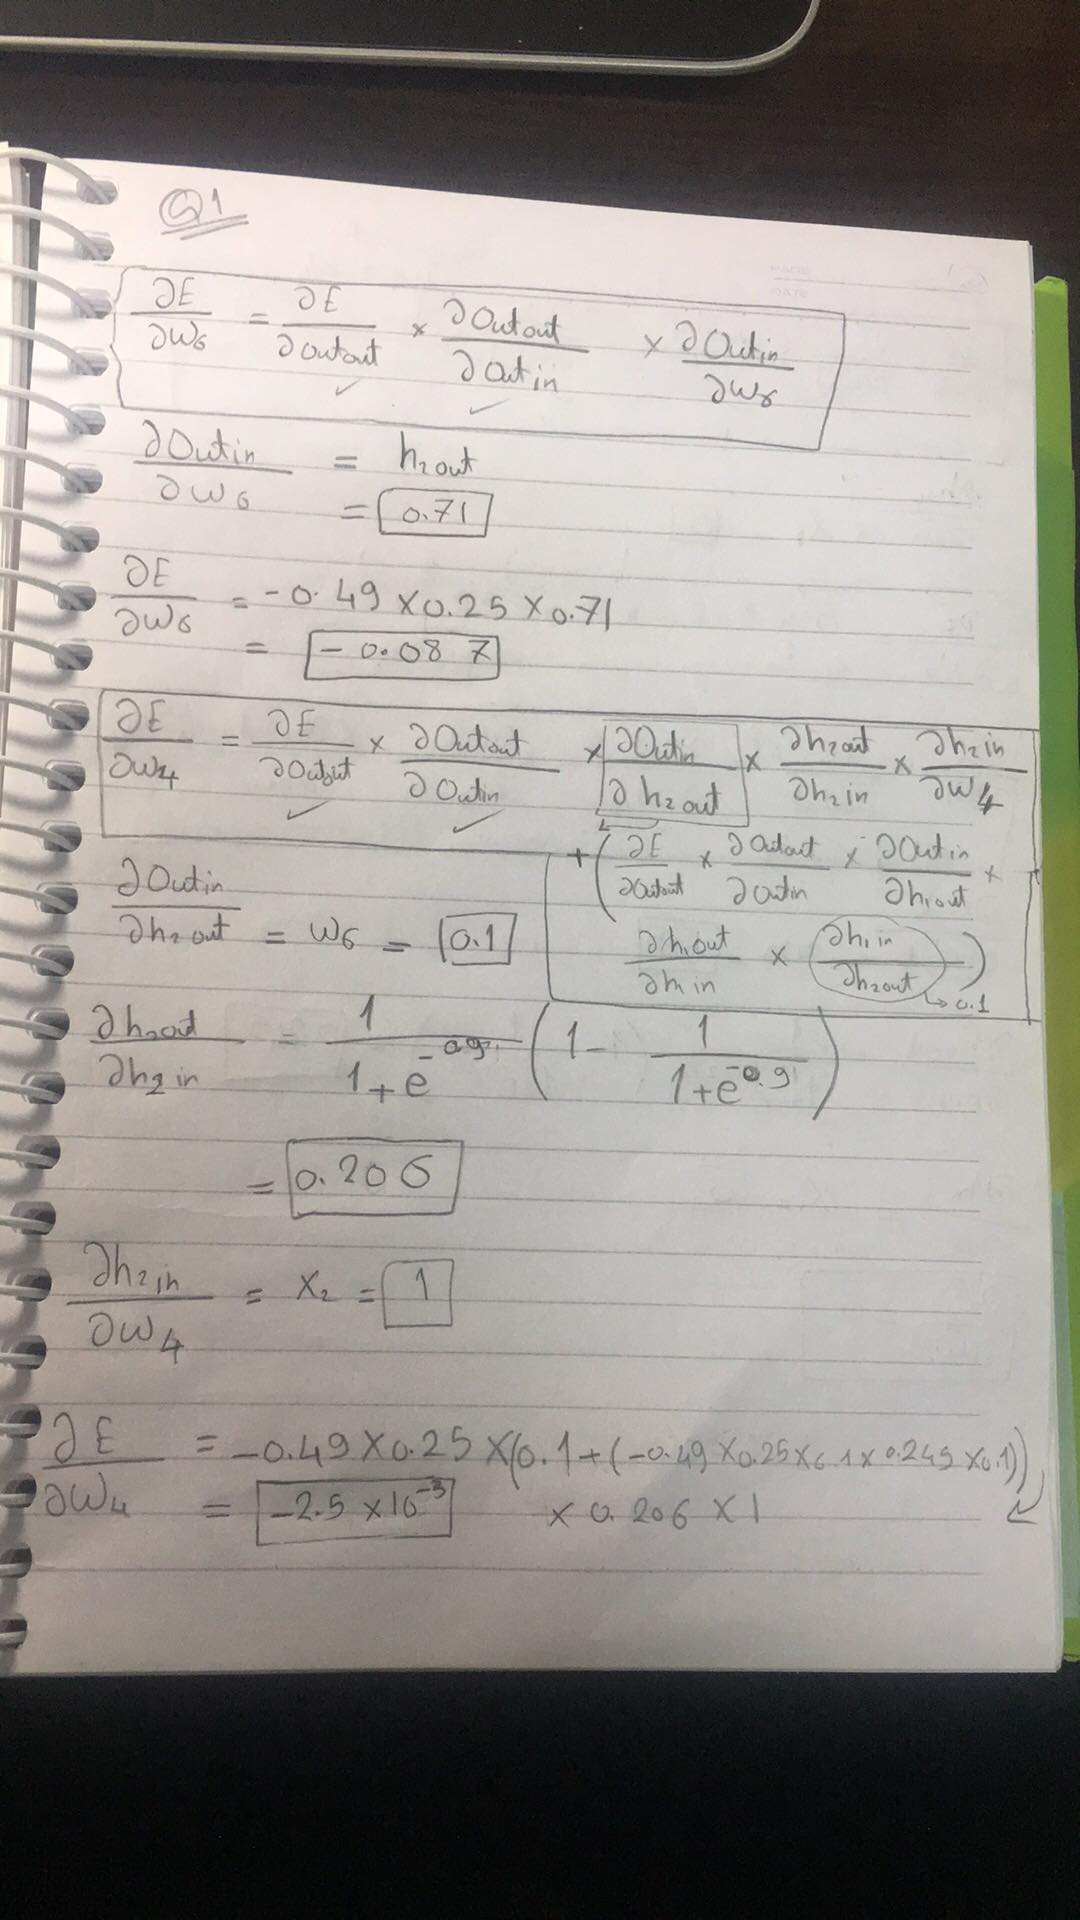 Q1
∂E/∂w6 = ∂E/∂outout × ∂Outout/∂Outin × ∂Outin/∂w6
∂Outin/∂w6 = h2out
= 0.71
∂E/∂w6 = -0.49 × 0.25 × 0.71
= -0.087
∂E/∂w4 = ∂E/∂Outout × ∂Outout/∂Outin × ∂Outin/∂h2out × ∂h2out/∂h2in × ∂h2in/∂w4
+ (∂E/∂Outout × ∂Outout/∂Outin × ∂Outin/∂h1out ×
∂h1out/∂h1in × ∂h1in/∂h2out) → 0.1
∂Outin/∂h2out = w6 = 0.1
∂h2out/∂h2in = 1/(1+e^-0.9) (1 - 1/(1+e^-0.9))
= 0.206
∂h2in/∂w4 = x2 = 1
∂E/∂w4 = -0.49 × 0.25 × (0.1 + (-0.49 × 0.25 × 0.1 × 0.249 × 0.1))
= -2.5 × 10^-3 × 0.206 × 1